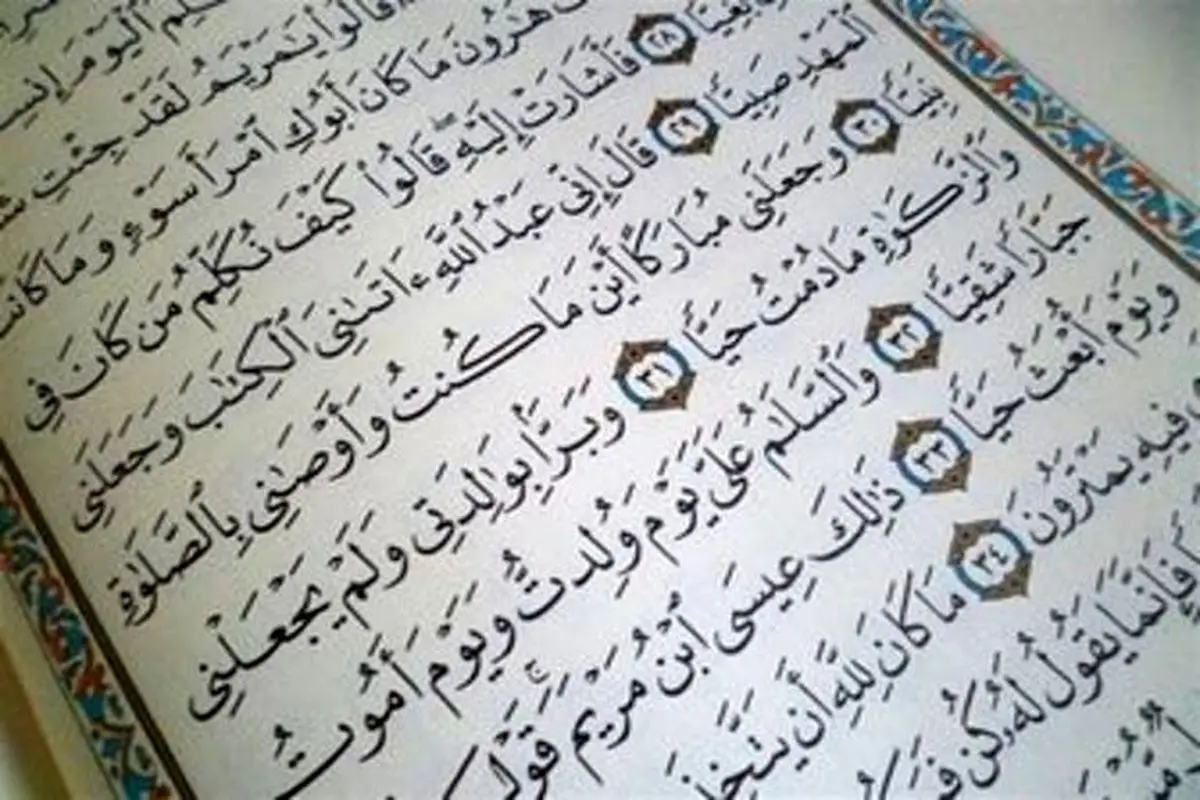 ٱلْيَوْمَ إِنسِ
قَالُوا۟ يَـٰمَرْيَمُ لَقَدْ جِئْتِ
هَـٰرُونَ مَا كَانَ أَبُوكِ ٱمْرَأَ سَوْءٍ وَمَا كَانَتْ
بَغِيًّا ٢٨ فَأَشَارَتْ إِلَيْهِ قَالُوا۟ كَيْفَ نُكَلِّمُ مَن كَانَ فِي
ٱلْمَهْدِ صَبِيًّا ٢٩ قَالَ إِنِّي عَبْدُ ٱللَّهِ ءَاتَىٰنِيَ ٱلْكِتَـٰبَ وَجَعَلَنِي
نَبِيًّا ٣٠ وَجَعَلَنِي مُبَارَكًا أَيْنَ مَا كُنتُ وَأَوْصَـٰنِي بِٱلصَّلَوٰةِ
وَٱلزَّكَوٰةِ مَا دُمْتُ حَيًّا ٣١ وَبَرًّۢا بِوَٰلِدَتِي وَلَمْ يَجْعَلْنِي
جَبَّارًا شَقِيًّا ٣٢ وَٱلسَّلَـٰمُ عَلَيَّ يَوْمَ وُلِدتُّ وَيَوْمَ أَمُوتُ
وَيَوْمَ أُبْعَثُ حَيًّا ٣٣ ذَٰلِكَ عِيسَى ٱبْنُ مَرْيَمَ قَوْلَ
فِيهِ يَمْتَرُونَ ٣٤ مَا كَانَ لِلَّهِ أَن يَتَّخِذَ
فَإِنَّمَا يَقُولُ لَهُۥ كُن